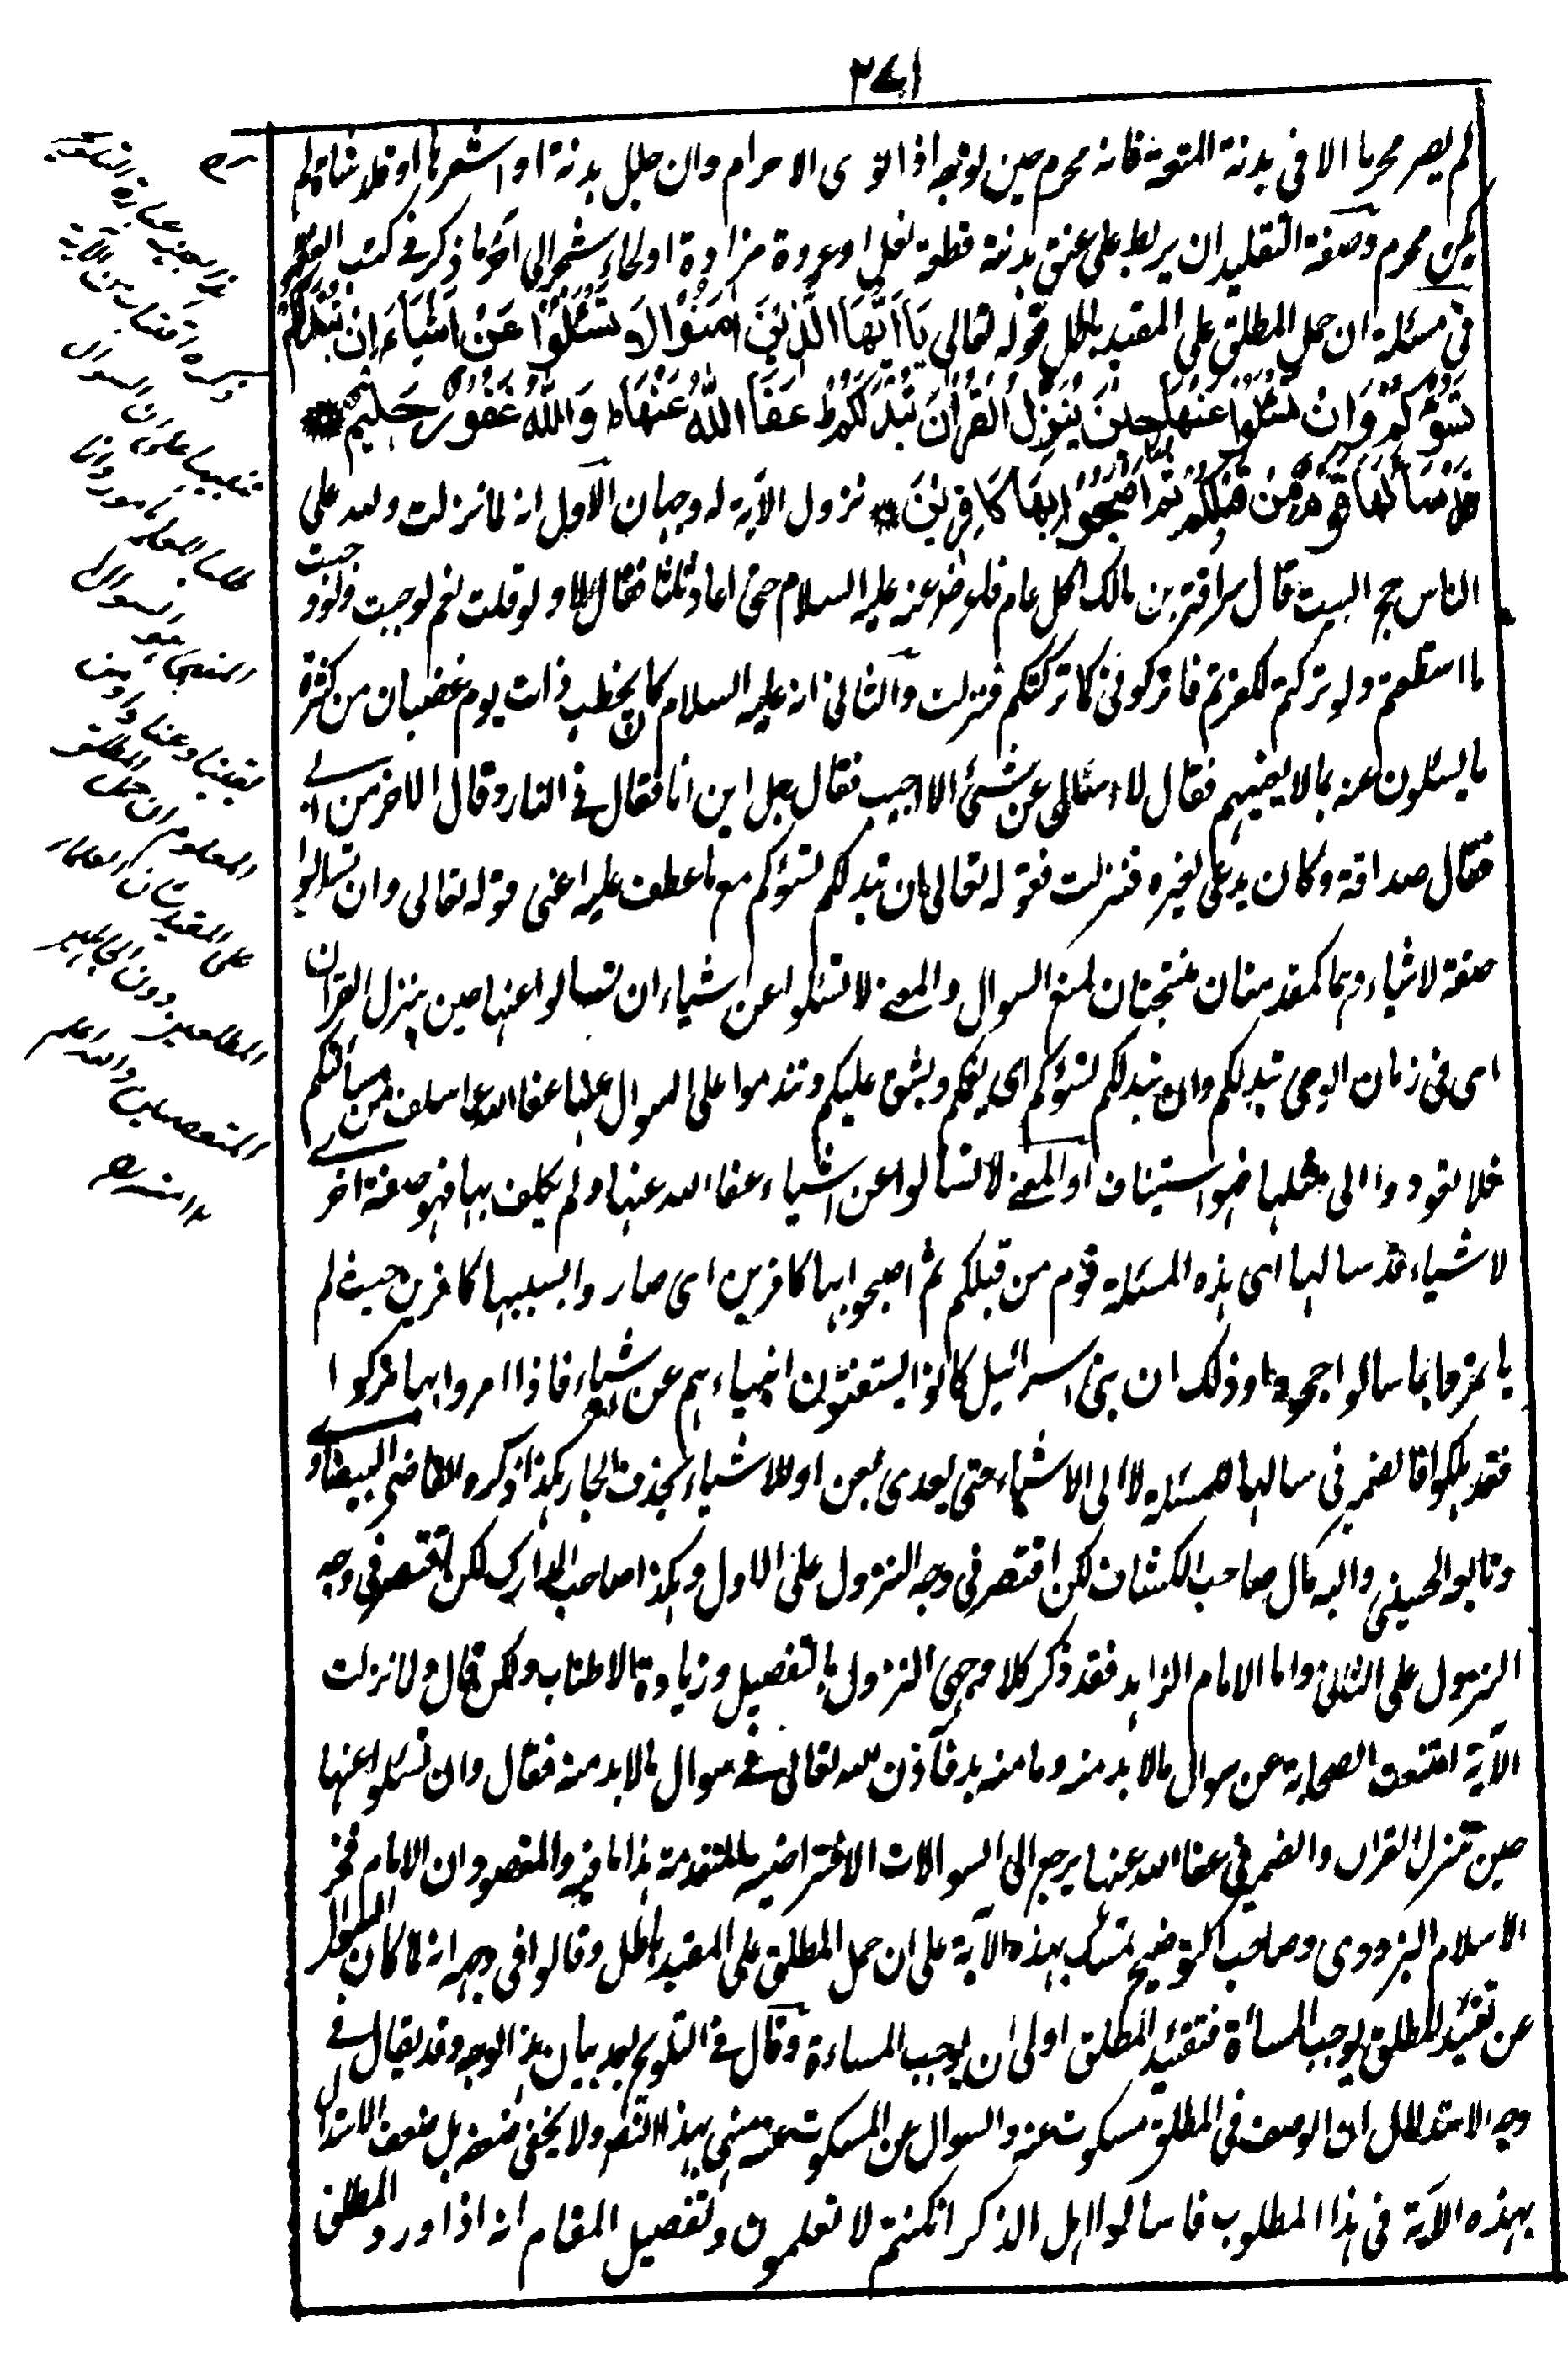 ٢٧١
لم يصر محرما الا في بدنة المتعة فانه محرم حين توجه اذا نوى الاحرام وان جلل بدنة او اشعرها او قلد شاة لم
يكن محرم وصفة التقليد ان يربط على عنق بدنة قطعة نعل او عروة مزادة او لحاء شجر الى آخر ما ذكر في كتب الفقه
في مسئلة ان حمل المطلق على المقيد باطل قوله تعالى يَا أَيُّهَا الَّذِيْنَ اٰمَنُوْا لَا تَسْئَلُوْا عَنْ اَشْيَاءَ اِنْ تُبْدَ لَكُمْ
تَسُؤْكُمْ وَاِنْ تَسْئَلُوْا عَنْهَا حِيْنَ يُنَزَّلُ الْقُرْاٰنُ تُبْدَ لَكُمْ ط عَفَا اللّٰهُ عَنْهَا ط وَاللّٰهُ غَفُوْرٌ حَلِيْمٌ
قَدْ سَاَلَهَا قَوْمٌ مِّنْ قَبْلِكُمْ ثُمَّ اَصْبَحُوْا بِهَا كَافِرِيْنَ نزول الآية له وجهان الاول انه لما نزلت ولله على
الناس حج البيت قال سراقة بن مالك اكل عام فاعرض عنه عليه السلام حتى اعاد ثلثا فقال لا ولو قلت نعم لوجبت ولو وجبت
ما استطعتم ولو تركتم لكفرتم فاتركوني كما تركتكم فنزلت والثاني انه عليه السلام كان يخطب ذات يوم غضبان من كثرة
ما يسئلون عنه بما لا يعنيهم فقال لا اسئال عن شئ الا اجيب فقال رجل اين انا فقال في النار وقال الاخر من ابي
فقال صداقة وكان يدعى لغيره فنزلت فقوله تعالى ان تبد لكم تسؤكم مع ما عطف عليه اعنى قوله تعالى وان تسالوا
صفة لاشياء وهما كمقدمتان منتجتان لمنع السوال والمعنى لا تسئلوا عن اشياء ان تسالوا عنها حين ينزل القران
اى في زمان الوحى تبد لكم وان تبد لكم تسؤكم اى يغمكم ويشق عليكم وتندموا على السوال عنها عفا الله عما سلف من مسألتكم
فلا تعودوا الى مثلها فهو استيناف او المعنى لا تسالوا عن اشياء عفا الله عنها ولم يكلف بها فهو صفة اخر
لاشياء قد سالها اى هذه المسئلة قوم من قبلكم ثم اصبحوا بها كافرين اى صاروا بسببها كافرين حيث لم
ياتمروا بما سالوا جحودا وذلك ان بني اسرائيل كانوا يستفتون انبياءهم عن اشياء فاذا امروا بها تركوا
فقد هلكوا فالضمير في سالها للمسئلة لا الى الاشياء حتى يعدى بعن او للاشياء بحذف الجار هكذا ذكره القاضي البيضاو
وتابعه الحسيني واليه مال صاحب الكشاف لكن اقتصر في وجه النزول على الاول وهكذا صاحب المدارك لكن اقتصر في وجه
النزول على الثاني واما الامام الزاهد فقد ذكر كلا وجهي النزول بالتفصيل وزيادة الاطناب ولكن قال ولما نزلت
الآية امتنعت الصحابة عن سوال ما لا بد منه وما منه بد فآذن الله تعالى في سوال ما لا بد منه فقال وان تسئلوا عنها
حين ينزل القران والضمير في عفا الله عنها يرجع الى السوالات الاقتراضيه للمتقدمة هذا ما فيه والمقصود ان الامام فخر
الاسلام البزدوى وصاحب التوضيح تمسك بهذه الآية على ان حمل المطلق على المقيد باطل وقالوا في وجهه انه لما كان السوال
عن تقييد المطلق يوجب المساءة فتقييد المطلق اولى ان يوجب المساءة وقال في التلويح بعد بيان هذا الوجه وقد يقال في
وجه الاستدلال ان الوصف في المطلق مسكوت عنه والسوال عن المسكوت عنه منهي بهذا النص ولا يخفى ضعفه بل ضعف الاستدلال
بهذه الآية في هذا المطلوب فاسالوا اهل الذكر ان كنتم لا تعلمون وتفصيل المقام انه اذا ورد المطلق
عبارة التلويح
من الآية
على ان السوال
السوال
يقينا وعنا ومن
المعلوم ان حمل المطلق
على المقيد شان العلماء
المطلعين دون الجاهلين
المتعصبين والله اعلم
١٢ منه